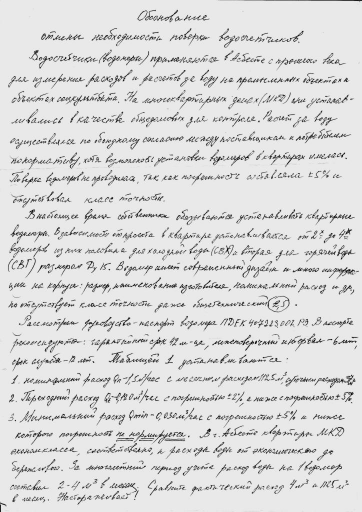 Обоснование
отмены необходимости поверки водосчетчиков.
Водосчетчики (водомеры) применяются в Асбесте с прошлого века
для измерения расходов и расчетов за воду на промышленных объектах и
объектах соцкультбыта. На многоквартирных домах (МКД) они устанав-
ливались в качестве общедомовых для контроля. Расчет за воду
осуществлялся по обоюдному согласию между поставщиком и потребителем
по нормативу, хотя возможность установки водомеров в квартирах имелась.
Поверка водомеров не проводилась, так как погрешность составляла ±5% и
отсутствовал класс точности.
В настоящее время собственники обязываются устанавливать квартирные
водомеры. В зависимости от проекта в квартире устанавливается от 2х до 4х
водомеров из них половина для холодной воды (СВХ) и вторая для горячей воды
(СВГ) размером Ду 15. Водомер имеет современный дизайн и много информа-
ции на корпусе: размер, наименование изготовителя, номинальный расход и др,
но отсутствует класс точности даже общетехнический
Рассмотрим руководство-паспорт водомера ПДЕК 407223.002 РЭ. В паспорте
рекомендуются: гарантийный срок 42 м-ца, межповерочный интервал - 6 лет,
срок службы - 12 лет. Таблицей 1 устанавливается:
1. номинальный расход Qn - 1,5 м³/час с месячным расходом 1125 м³
2. Переходный расход Qt - 0,120 м³/час с погрешностью ±2% а ниже с погрешностью ±5%
3. Минимальный расход Qmin - 0,030 м³/час с погрешностью ±5% и ниже
которого погрешность не нормируется. В г. Асбесте квартиры МКД
экономкласса, соответственно, и расходы воды от экономичного до
бережливого. За многолетний период учета расход воды на 1 водомер
составил 2-4 м³ в месяц. Сравните фактический расход 4 м³ и 1125 м³
в месяц. Настораживает!